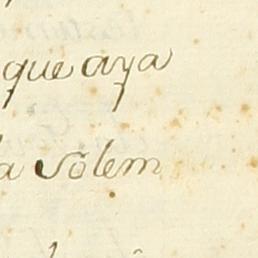 que aya
a Solem